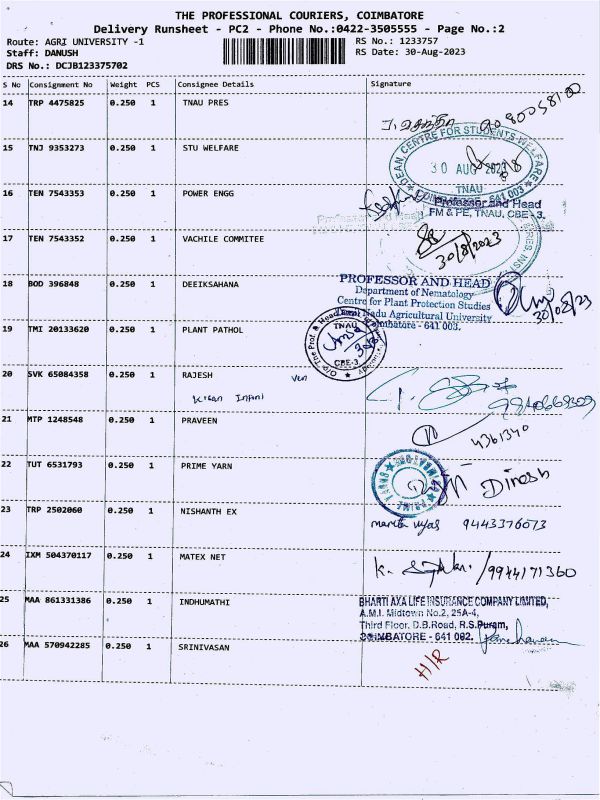 THE PROFESSIONAL COURIERS, COIMBATORE
Delivery Runsheet - PC2 - Phone No.:0422-3505555 - Page No.:2
Route: AGRI UNIVERSITY -1
RS No.: 1233757
Staff: DANUSH
RS Date: 30-Aug-2023
DRS No.: DCJB123375702
S No Consignment No Weight PCS Consignee Details Signature
14 TRP 4475825 0.250 1 TNAU PRES
DEAN, CENTRE FOR STUDENTS WELFARE
15 TNJ 9353273 0.250 1 STU WELFARE
30 AUG 2023
TNAU
641 003
16 TEN 7543353 0.250 1 POWER ENGG
Professor and Head
FM & PE, TNAU, CBE - 3.
17 TEN 7543352 0.250 1 VACHILE COMMITEE
30/8/2023
18 BOD 396848 0.250 1 DEEIKSAHANA
PROFESSOR AND HEAD
Department of Nematology
Centre for Plant Protection Studies
Nadu Agricultural University
Coimbatore - 641 003.
30/08/23
19 TMI 20133620 0.250 1 PLANT PATHOL
TNAU
CBE-3
20 SVK 65084358 0.250 1 RAJESH
ven
21 MTP 1248548 0.250 1 PRAVEEN
4361340
22 TUT 6531793 0.250 1 PRIME YARN
Dinesh
23 TRP 2502060 0.250 1 NISHANTH EX
vyas 9443376073
24 IXM 504370117 0.250 1 MATEX NET
K. /9944171360
25 MAA 861331386 0.250 1 INDHUMATHI
BHARTI AXA LIFE INSURANCE COMPANY LIMITED,
A.M.I. Midtown No.2, 25A-4,
Third Floor, D.B.Road, R.S.Puram,
COIMBATORE - 641 002.
26 MAA 570942285 0.250 1 SRINIVASAN
H/R